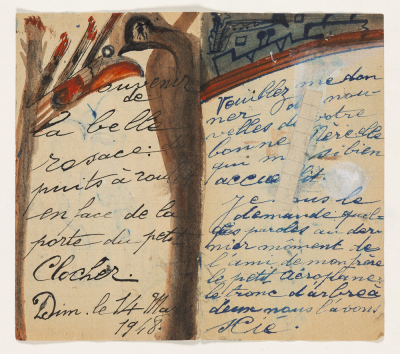 Souvenir
de
la belle
rosace.
puits à roue
en face de la
porte du petit
Clocher.
Dim. le 14 Ma
1948.
Veuillez me don
ner de nou-
velles de votre
bonne Percette
qui m si bien
accue lit.
Je sus le
demande quel-
ques paroles au der-
nier môment de
l'ami de mon frère
le petit Aéroplane
le tronc d'arbre à
deux nous l'avons
scie.